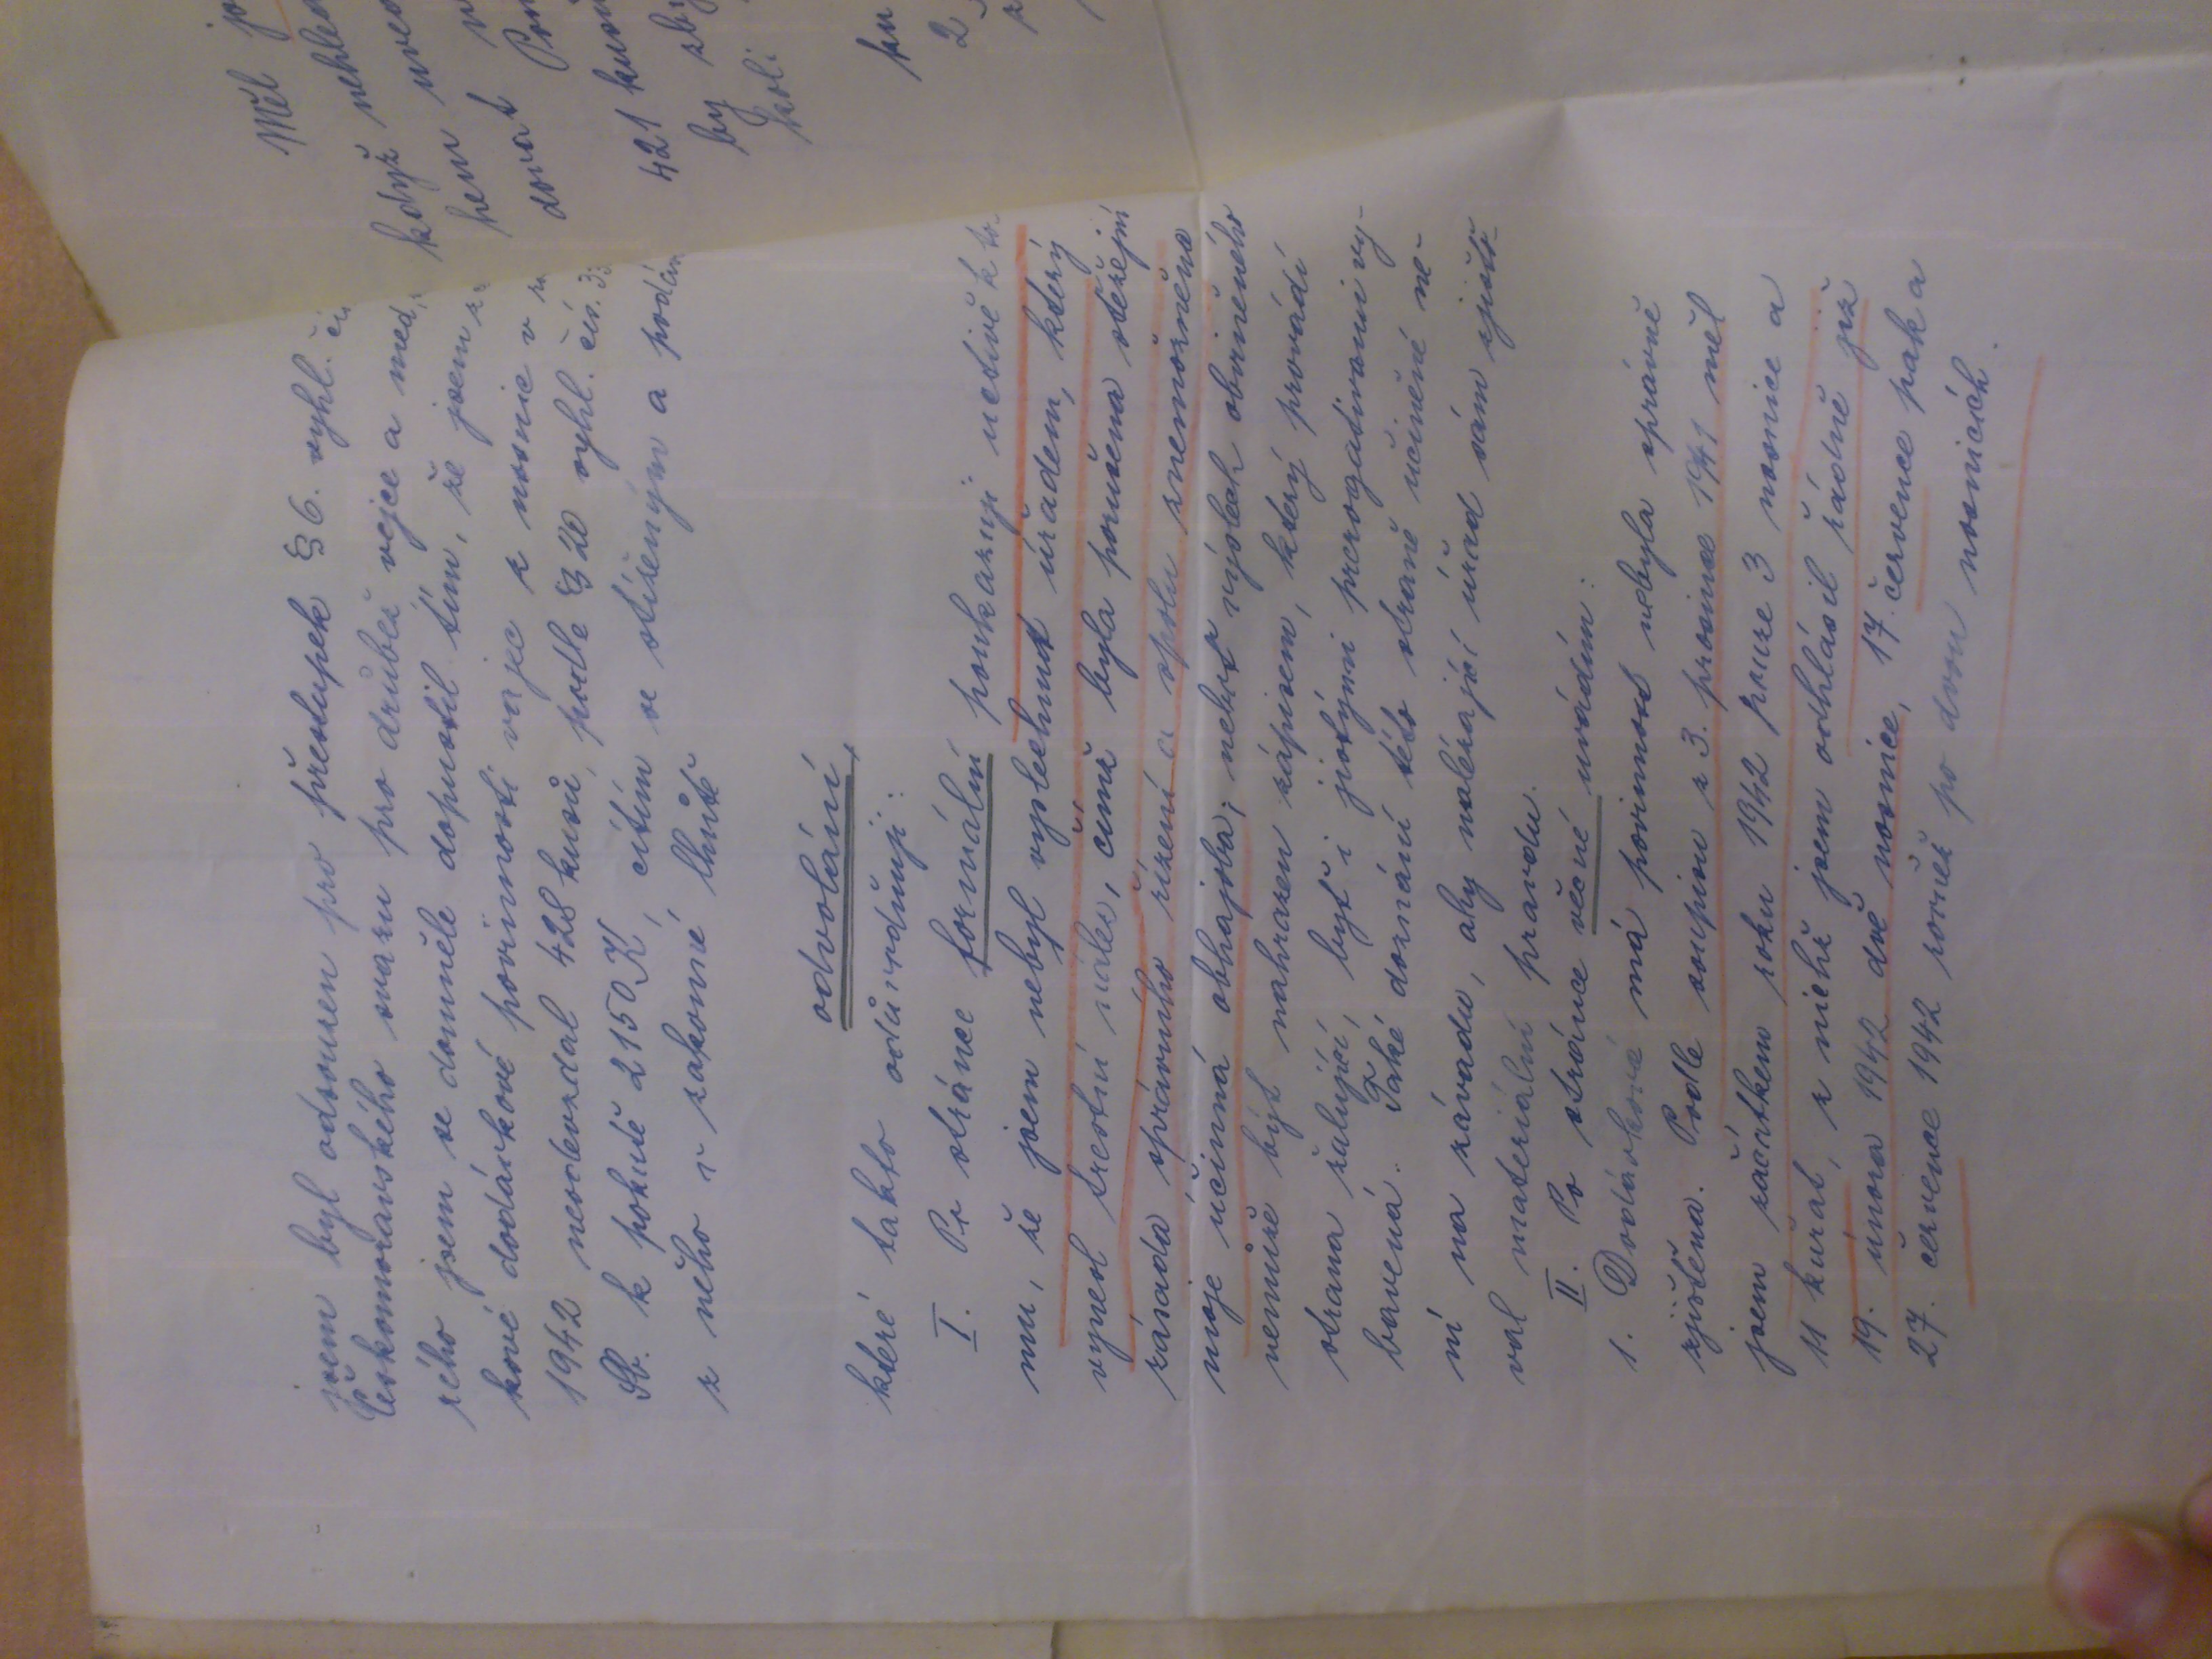 jsem byl odsouzen pro přestupek § 6. vyhl. čís
Českomoravského svazu pro drůbež vejce a med,
rého jsem se domněle dopustil tím, že jsem z
kové dodávkové povinnosti vajec z nosnic v ro
1942 neodevzdal 428 kusů, podle § 20 vyhl. čís. 33
Sb. k pokutě 2150 K, cítím se stíženým a podáv
z něho v zákonné lhůtě
odvolání,
které takto odůvodňuji:
I. Po stránce formální poukazuji uctivě k to-
mu, že jsem nebyl vyslechnut úřadem, který
vynesl trestní nález, čímž byla porušena stěžejní
zásada správního řízení a spolu znemožněna
moje účinná obhajoba; neboť výslech obviněného
nemůže být nahrazen zápisem, který provádí
strana žalující, byť i jistými prerogativami vy-
bavená. Také doznání této straně učiněné ne-
ní na závadu, aby nalézající úřad sám zjišťo-
val materiální pravdu.
II. Po stránce věcné uvádím:
1. Dodávková má povinnost nebyla správně
zjištěna. Podle soupisu z 3. prosince 1941 měl
jsem začátkem roku 1942 pouze 3 nosnice a
11 kuřat, z nichž jsem odhlásil řádně již
19. února 1942 dvě nosnice, 17. července pak a
27. července 1942 rovněž po dvou nosnicích.
Měl js
když nehled
hem uved
dovat
Pon
421 kusů
by zby
koli
ku
2
ž